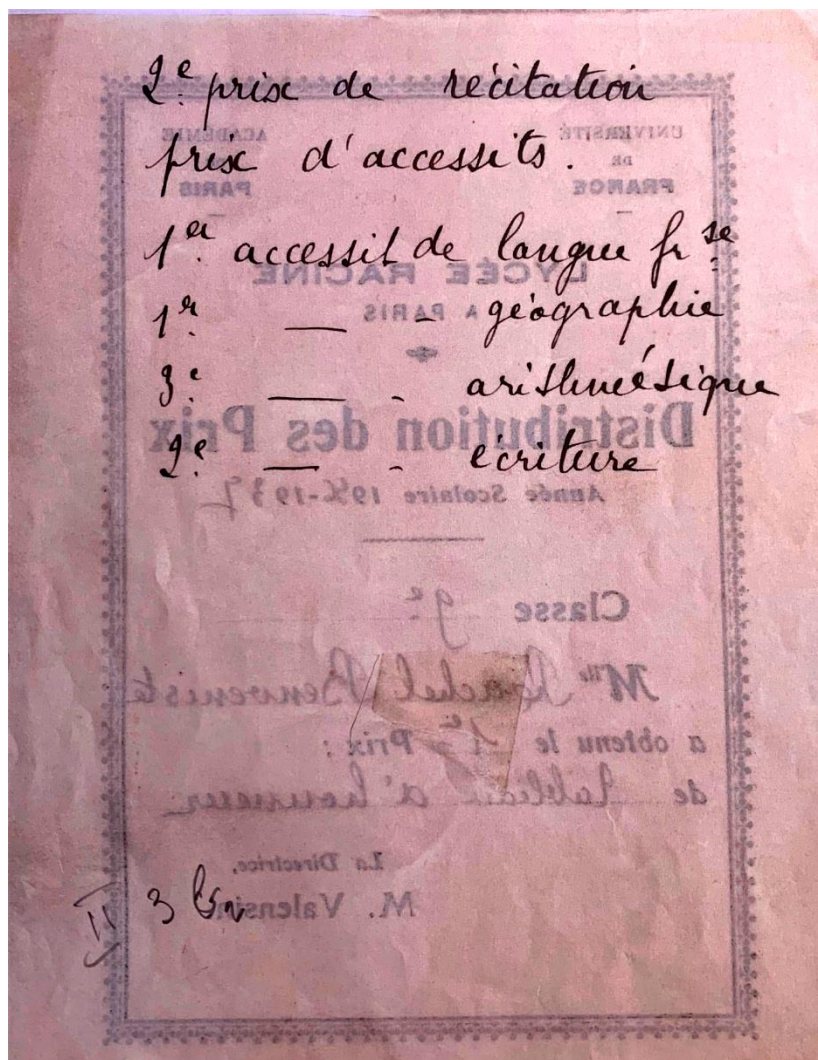 2e prix de récitation
prix d'accessits.
1er accessit de langue frse
1er — - géographie
3e — - arithmétique
2e — - écriture
UNIVERSITÉ DE FRANCE
ACADÉMIE PARIS
LYCÉE RACINE
A PARIS
Distribution des Prix
Année Scolaire 1936-1937
Classe 9e
Mlle Rachel Benveniste
a obtenu le 1er Prix :
de tableau d'honneur
La Directrice,
M. Valensin
3